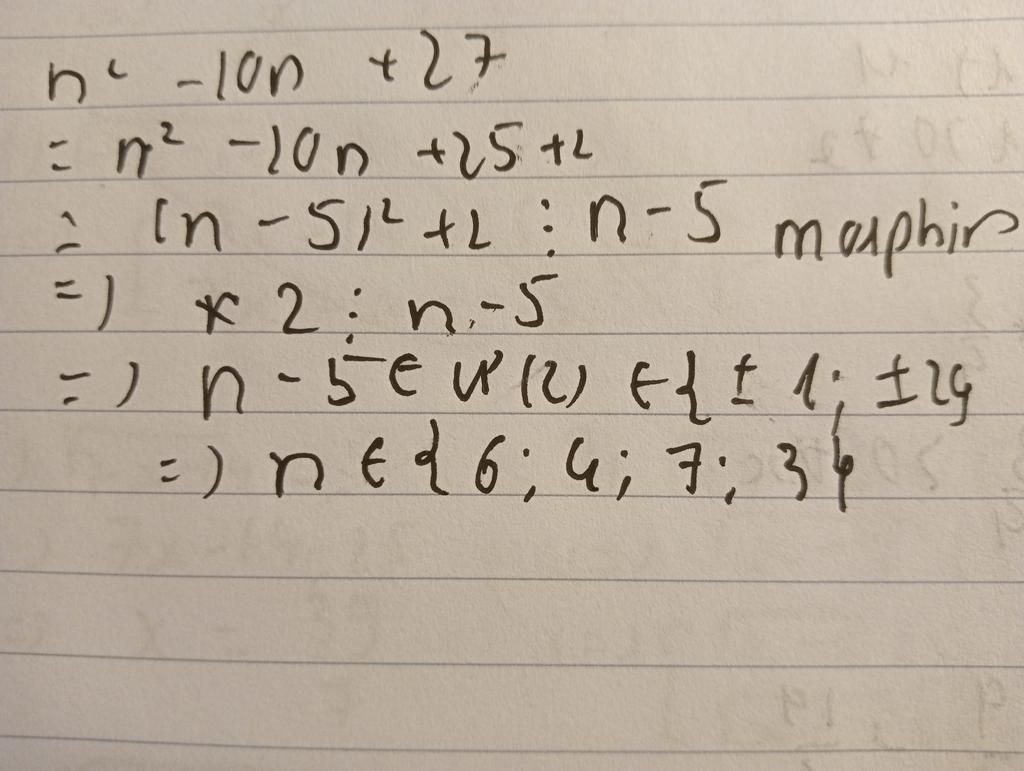 n² -10n +27
= n² -10n +25 +2
= (n - 5)² +2 ⋮ n - 5
=) * 2 ⋮ n - 5
=) n - 5 ∈ Ư(2) ∈ { ± 1; ±2}
=) n ∈ { 6; 4; 7; 3}